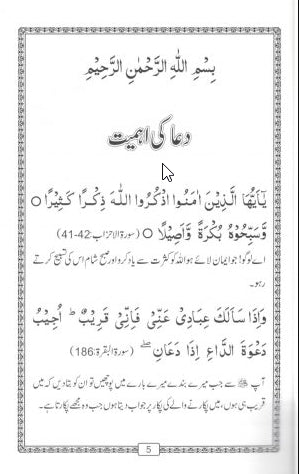 بِسْمِ اللّٰهِ الرَّحْمٰنِ الرَّحِيْمِ
دعا کی اہمیت
يٰٓاَيُّهَا الَّذِيْنَ اٰمَنُوا اذْكُرُوا اللّٰهَ ذِكْرًا كَثِيْرًا ○
وَّسَبِّحُوْهُ بُكْرَةً وَّاَصِيْلًا ○ (سورۃ الاحزاب: 42-41)
اے لوگو! جو ایمان لائے ہو اللہ کو کثرت سے یاد کرو اور صبح شام اس کی تسبیح کرتے
رہو۔
وَاِذَا سَاَلَكَ عِبَادِيْ عَنِّيْ فَاِنِّيْ قَرِيْبٌ ؕ اُجِيْبُ
دَعْوَةَ الدَّاعِ اِذَا دَعَانِ ۙ (سورۃ البقرۃ: 186)
آپ ﷺ سے جب میرے بندے میرے بارے میں پوچھیں تو ان کو بتا دیں کہ میں
قریب ہی ہوں، میں پکارنے والے کی پکار پر جواب دیتا ہوں جب وہ مجھے پکارتا ہے۔
5